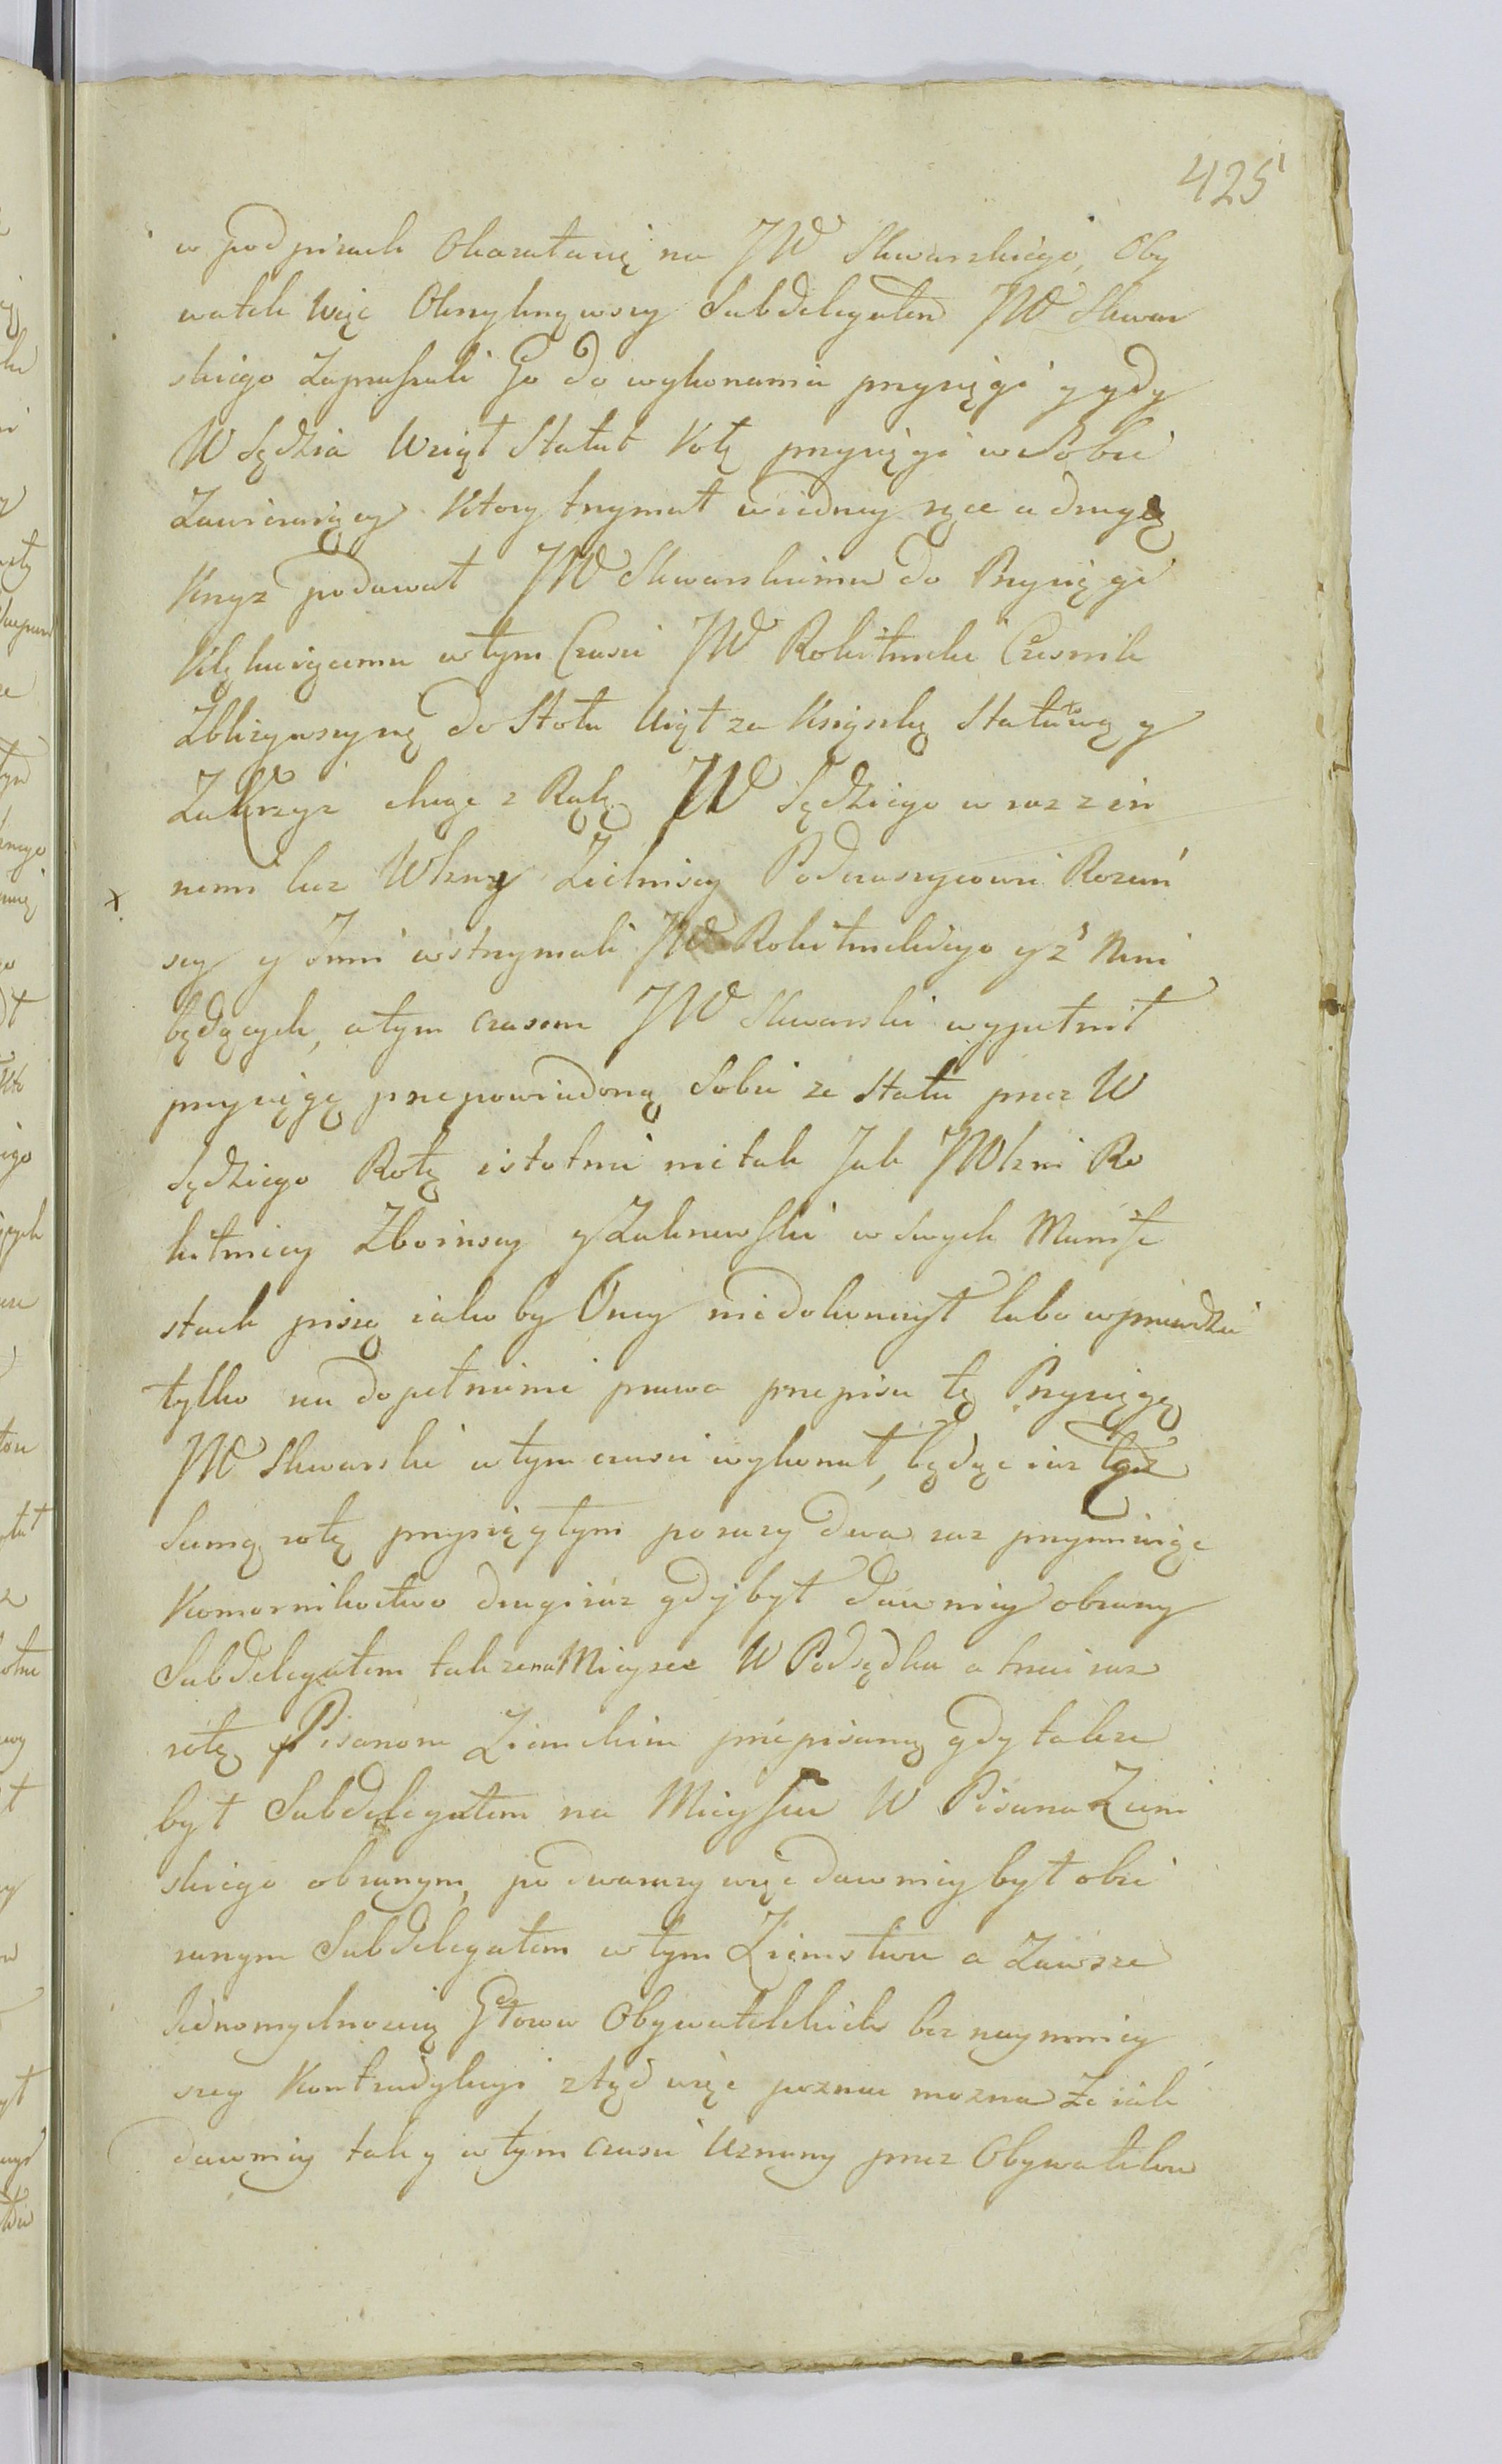 425
w podpisach Okazała się na JW Skwarskiego, Oby
watele więc Okrzyknąwszy Subdelegatem JW Skwar
skiego Zapraszali Go do wykonania przysięgi y gdy
W Sędzia Wziął Statut Rotę przysięgi w Sobie
Zawieraiący Ktory trzymał w iedney ręce a drugą
Krzyz podawał JW Skwarskiemu do Przysięgi
Klękaiącemu w tym Czasie JW Rokitnicki Czesnik
Zbliżywszy się do Stołu Uiął za Ksiąszkę Statutową y
Zakrzyz chcąc z Ręk JW Sędziego wraz z in
nemi lecz Wlzny Zielinscy Podczaszycowie Rozań
scy y Inni wstrzymali JW Rokitnickiego y z Nim
będących, a tym czasem JW Skwarski wypełnił
przysięgę przepowiedzoną Sobie ze Statu przez W
Sędziego Rotę istotnie nie tak Jak JWlzni Ro
kitniccy Zboinscy y Zakrzewski w swych Manife
stach piszą iako by Oney niedokonczył lubo w prawdzie
tylko na dopełnienie prawa przepisu tę Przysięgę
JW Skwarski w tym czasie wykonał, będąc iuz tąz
Samą rotę przysięgłym po razy dwa raz przymuiąc
Komornikostwo drugi raz gdy był dawniey obrany
Subdelegatem także na Mieysce W Podsędka a trzeci raz
rotę Pisarzom Ziemskim przepisaną gdy takze
był Subdelegatem na Mieyscu W Pisarza Ziem
skiego obranym, po dwa razy więc dawniey był obie
ranym Subdelegatem w tym Ziemstwie a Zawsze
Jednomyslnoscią Głosow Obywatelskich bez naymniey
szey Kontradykcyi z tąd więc poznać mozna Ze iak
dawniey tak y w tym czasie Uznany przez Obywatelow